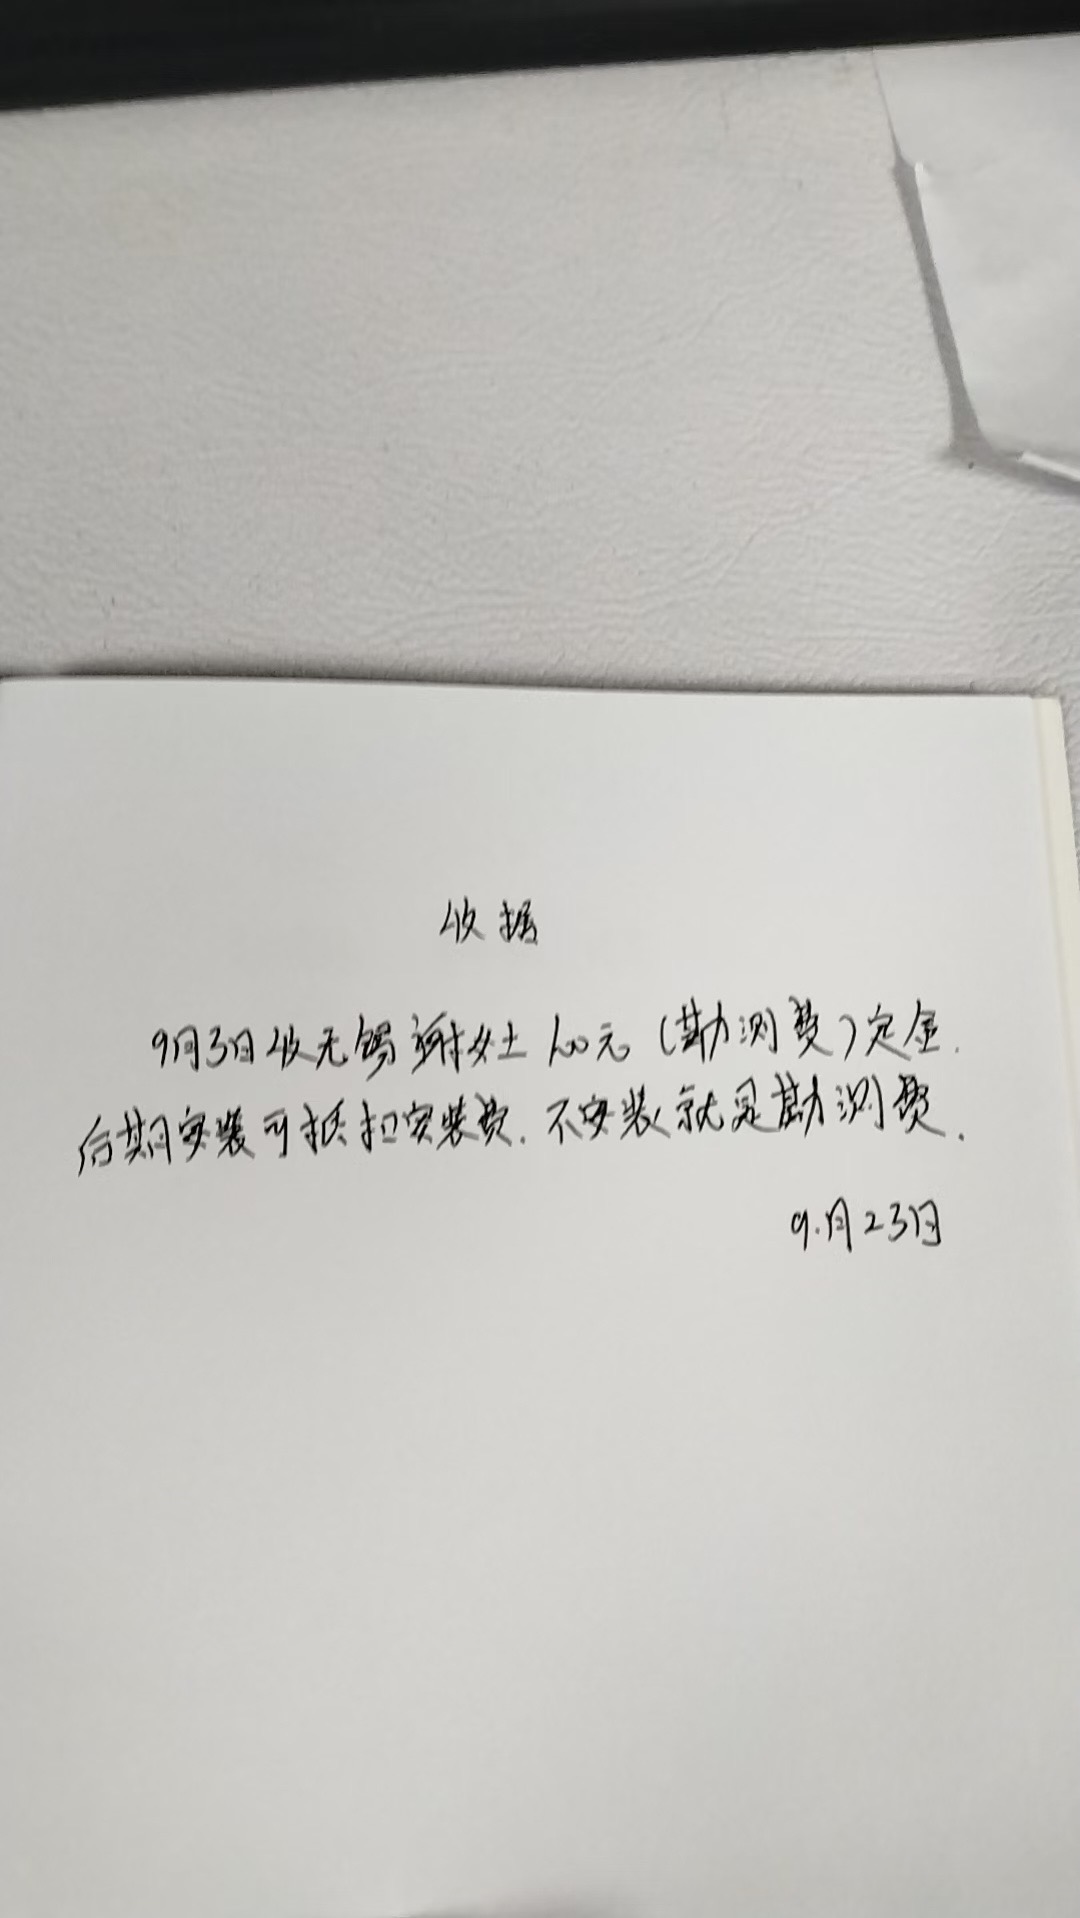 收据
9月3日收无锡谢女士100元(勘测费)定金.
后期安装可抵扣安装费.不安装就是勘测费.
9.月23日